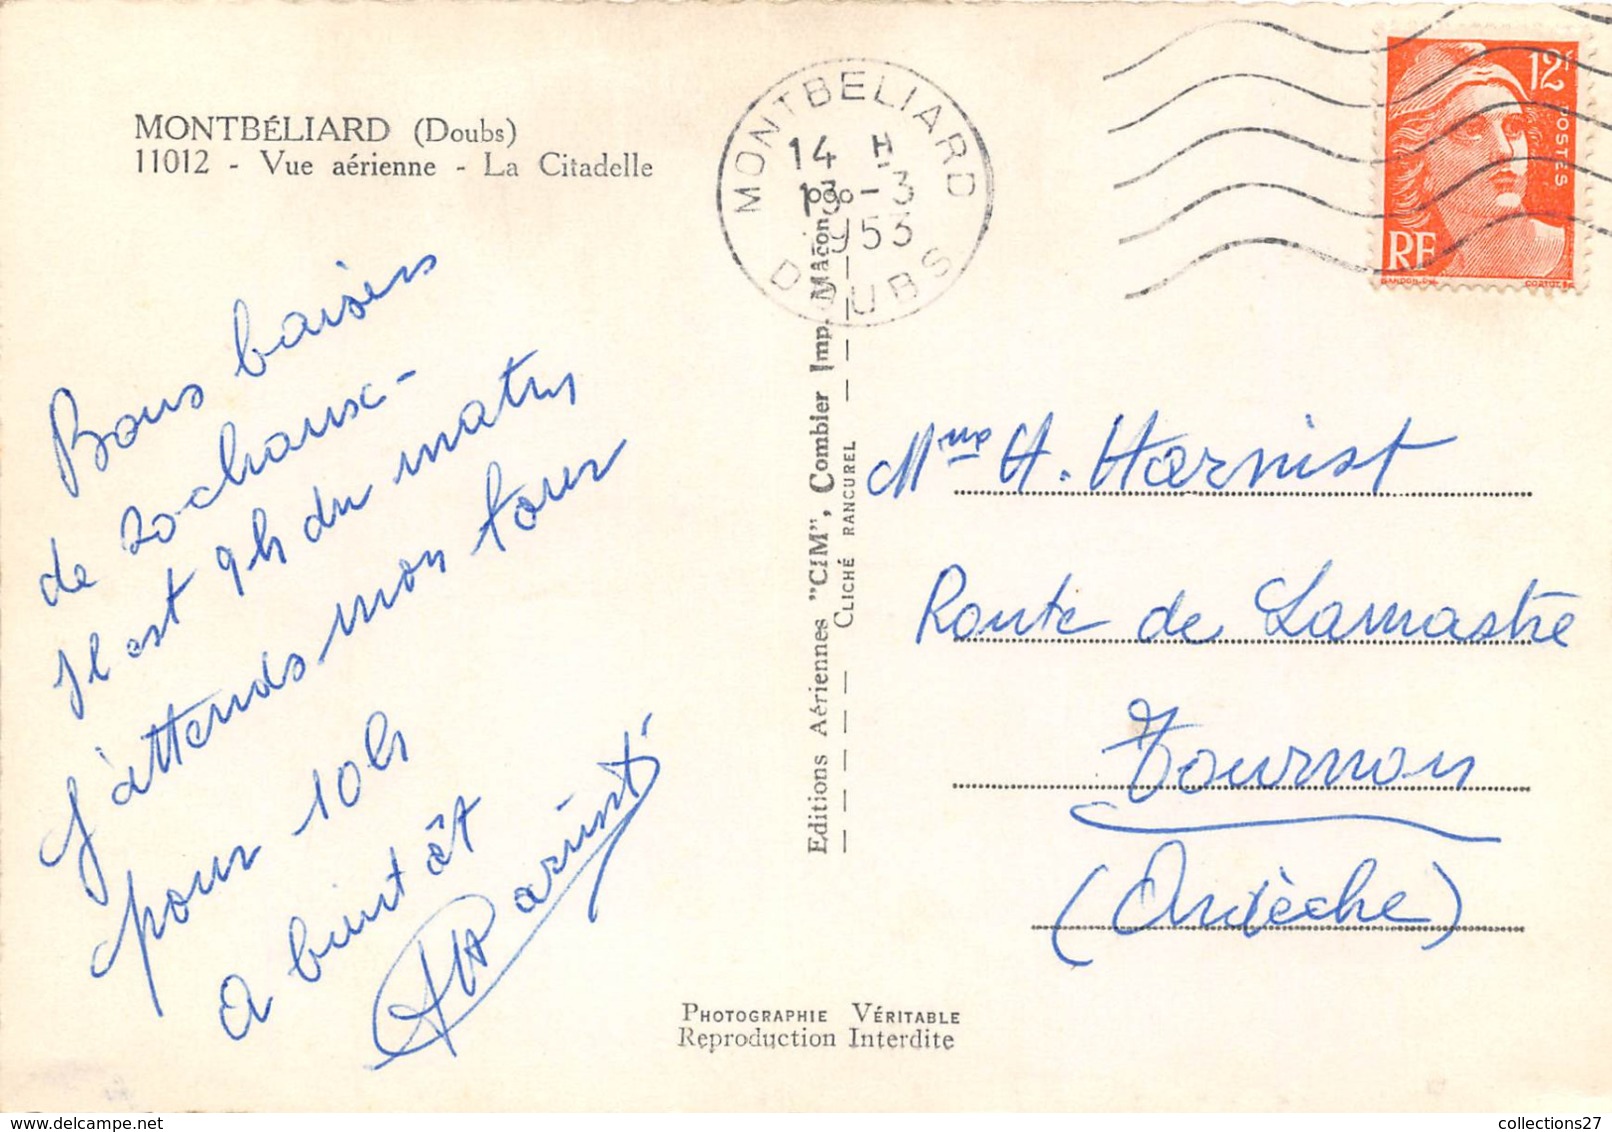 MONTBÉLIARD (Doubs)
11012 - Vue aérienne - La Citadelle
Bons baisers
de Sochaux -
Il est 9h du matin
j'attends mon tour
pour 10h
a bientôt
MONTBELIARD
14 H
13 - 3
1953
DOUBS
12F
POSTES
RF
GANDON
CORTOT
Editions Aériennes "CIM", Combier Imp. Mâcon
CLICHÉ RANCUREL
Mme H. Harnist
Route de Lamastre
Tournon
(Ardèche)
PHOTOGRAPHIE VÉRITABLE
Reproduction Interdite
collections27